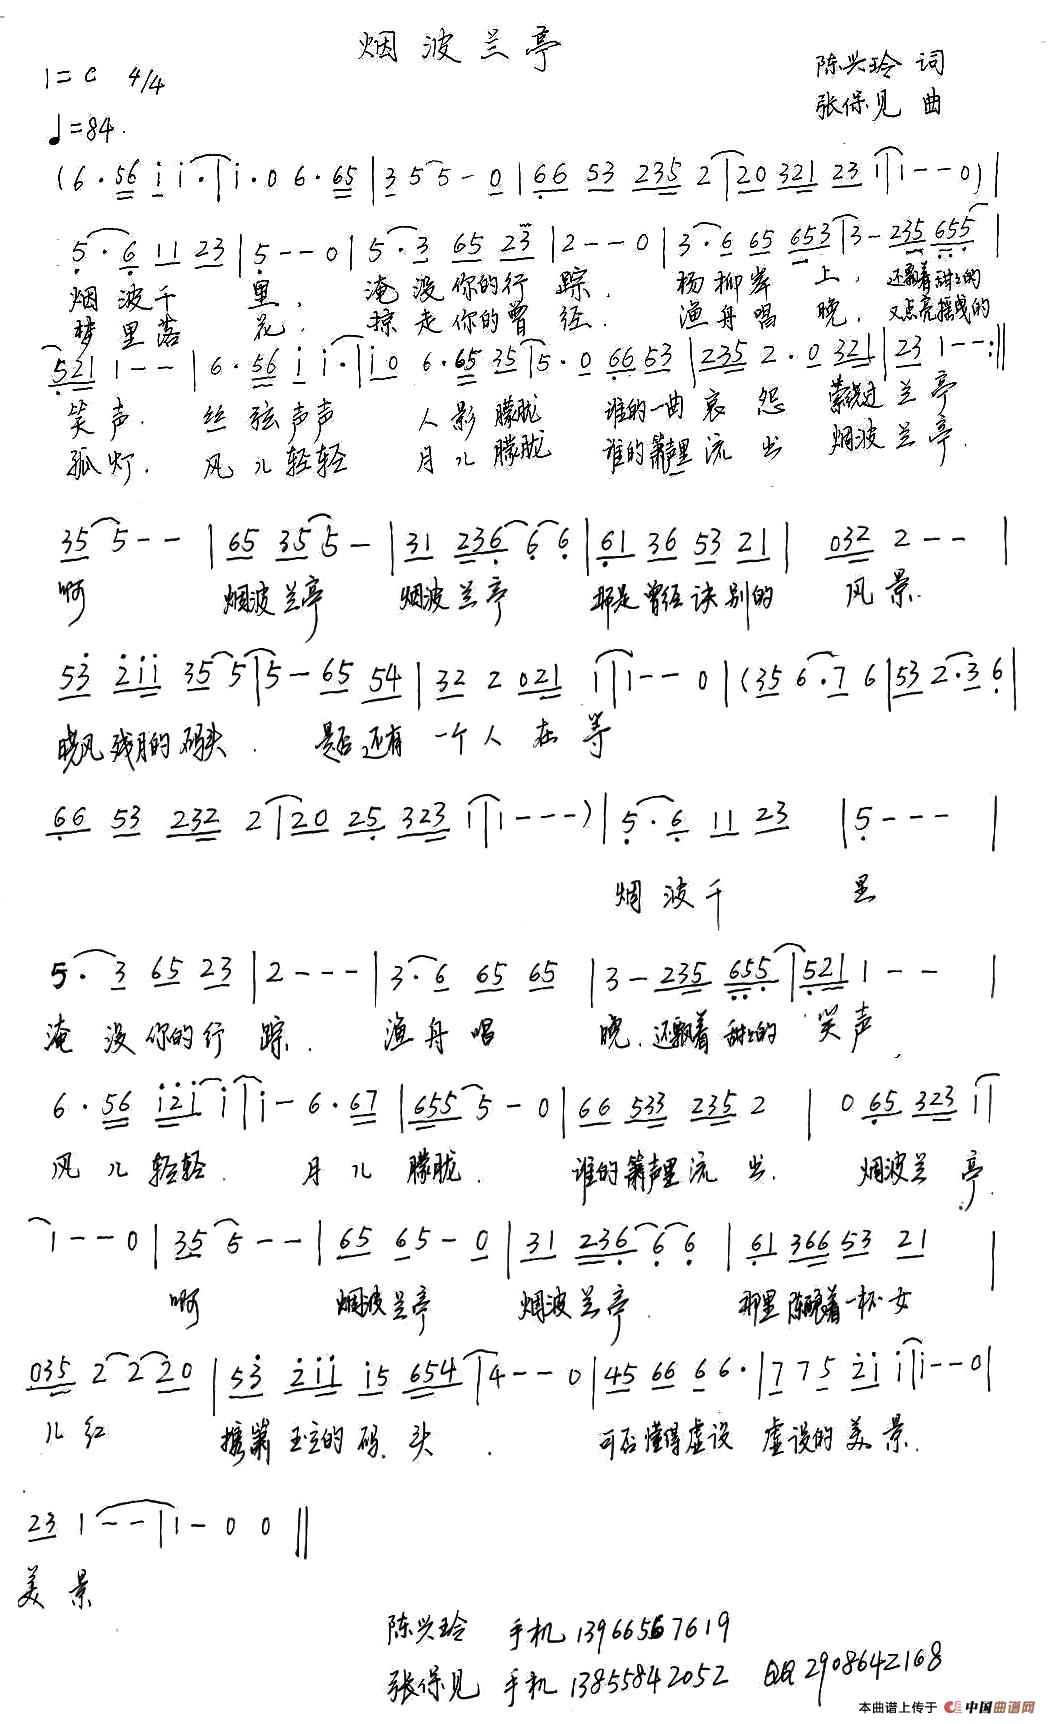 烟波兰亭
1=C 4/4
陈兴玲 词
♩=84.
张保见 曲
(6·56 i i·|i·0 6·65|3 5 5-0|66 53 235 2|20 321 23 1|1--0)|
5·6 11 23|5--0|5·3 65 23|2--0|3·6 65 653|3-235 655|
烟波千里, 淹没你的行踪. 杨柳岸上, 还飘着甜甜的
梦里落花, 掠走你的曾经. 渔舟唱晚, 又点亮摇曳的
521 1--|6·56 i i·|i0 6·65 35|5·0 66 53|235 2·0 321|23 1--:||
笑声. 丝弦声声 人影朦胧 谁的一曲哀怨 萦绕过兰亭
孤灯. 风儿轻轻 月儿朦胧 谁的箫声里流出 烟波兰亭.
35 5--|65 35 5-|31 236 6 6|61 36 53 21|032 2--|
啊 烟波兰亭 烟波兰亭 那是曾经诀别的风景.
53 2ii 35 5|5-65 54|32 2 021 1|1--0|(35 6·7 6|53 2·3 6|
晓风残月的码头. 是否还有一个人在等
66 53 232 2|20 25 323 1|1---)|5·6 11 23|5---|
烟波千里
5·3 65 23|2---|3·6 65 65|3-235 655|521 1--|
淹没你的行踪. 渔舟唱晚. 还飘着甜甜的笑声
6·56 i2i i|i-6·67|655 5-0|66 533 235 2|0 65 323 1|
风儿轻轻. 月儿朦胧. 谁的箫声里流出. 烟波兰亭.
1--0|35 5--|65 65-0|31 236 6 6|61 366 53 21|
啊 烟波兰亭 烟波兰亭. 那里陈酿着一杯女
035 2 2 20|53 2ii i5 654|4--0|45 66 6 6·|7 7 5 2i i|i--0|
儿红 携箫玉立的码头. 可否懂得虚设 虚设的美景.
23 1--|1-0 0||
美景
陈兴玲 手机13966567619
张保见 手机13855842052 QQ2908642168
本曲谱上传于 中国曲谱网